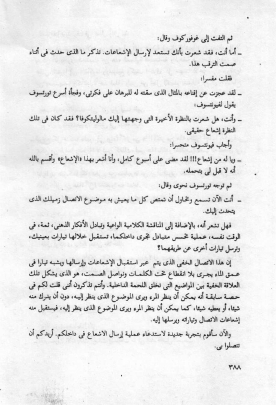 ثم التفت إلى غوفوركوف وقال:
ــ أما أنت، فقد شعرت بأنك تستعد لإرسال الإشعاعات. تذكر ما الذى حدث فى أثناء
صمت الترقب هذا.
فقلت مفسرا:
ــ لقد عجزت عن إقناعه بالمثال الذى سقته له للبرهان على فكرتى، وفجأة أسرع تورتسوف
يقول لفيونتسوف:
ــ وأنت، هل شعرت بالنظرة الأخيرة التى وجهتها إليك مالوليتكوفا؟ فقد كان فى تلك
النظرة إشعاع حقيقى.
وأجاب فيونتسوف متحسرا:
ــ ويا له من إشعاع!!! لقد مضى على أسبوع كامل، وأنا أشعر بهذا «الإشعاع» وأقسم بالله
أنه لا قبل لى بتحمله.
ثم توجه تورتسوف نحوى وقال:
ــ أنت الآن تسمع وتحاول أن تمتص كل ما يعيش به موضوع الاتصال زميلك الذى
يتحدث إليك.
فهل تشعر أنه، بالإضافة إلى المناقشة الكلامية الواعية وتبادل الأفكار الذهنى، ثمة، فى
الوقت نفسه، عملية تحسس متبادل تجرى داخلكم، تستقبل خلالها تيارات بعينيك،
وترسل تيارات أخرى عن طريقهما؟
إن هذا الاتصال الخفى الذى يتم عبر استقبال الإشعاعات وإرسالها ويشبه تيارا فى
عمق الماء يجرى بلا انقطاع تحت الكلمات ونواصل الصمت، هو الذى يشكل تلك
العلاقة الخفية بين المواضيع التى تخلق اللحمة الداخلية. وأنتم تذكرون أنى قلت لكم فى
حصة سابقة أنه يمكن أن ينظر المرء ويرى الموضوع الذى ينظر إليه، دون أن يترك منه
شيئا، أو يعطيه شيئا، كما يمكن أن ينظر المرء ويرى الموضوع الذى ينظر إليه، فيستقبل منه
إشعاعات الاتصال وتياراته ويرسلها إليه.
والآن سأقوم بتجربة جديدة لاستدعاء عملية إرسال الاشعاع فى داخلكم. أريدكم أن
تتصلوا بى.
٣٨٨